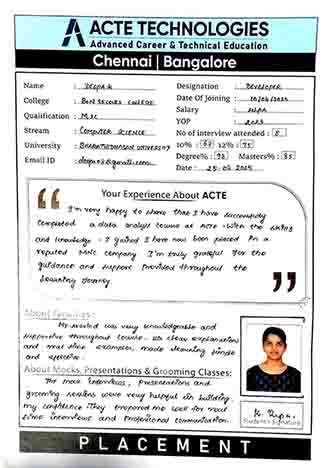 ACTE TECHNOLOGIES
Advanced Career & Technical Education
Chennai | Bangalore
Name : Deepa.K
Designation : Developer
College : Bon Secours College
Date Of Joining :
Qualification : M.sc
Salary :
Stream : Computer Science
YOP : 2023
No of interview attended :
University : Bharathidasan University
10% : 12% :
Email ID :
Degree% : Masters% : 85
Date : 25-02-2025
Your Experience About ACTE
I'm very happy to share that I have successfully
completed a data analyst course at ACTE with the skills
and knowledge I gained I have now been placed in a
reputed MNC company I'm truly grateful for the
guidance and support provided throughout the
learning journey.
About Faculties :
was very knowledgeable and
supportive throughout course. clear explanations
and real time examples, made learning simple
and effective.
About Mocks, Presentations & Grooming Classes:
The mock interviews, presentations and
grooming sessions were very helpful in building
my confidence They prepared me well for real
time interviews and professional communication.
Student's Signature
PLACEMENT